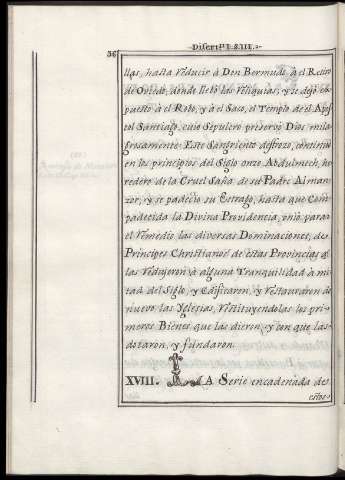 36
Disert.ⁿ I. §. III.
llas, hasta reducir à Don Bermudo à el Retiro
de Oviedo, donde llebó las Reliquias, y se dejó ex-
puesto à el Robo, y à el Saco, el Templo de el Apos
tol Santiago, cuio Sepulcro preservó Dios mila-
grosamente: Este Sangriento destrozo, continuó
en los principios del Siglo onze Abdulmech, he-
redero de la Cruel Saña de su Padre Alman-
zor, y se padecio su Estrago, hasta que Com-
padecida la Divina Providencia, vnió para
el remedio, las diversas Dominaciones, de
Principes Christianos de estas Provincias q.e
las redujeron à alguna Tranquilidad à mi-
tad del Siglo, y Edificaron, y restauraron de
nuevo las Yglesias, restituyendolas los pri-
meros Bienes que las dieron, y con que las-
dotaron, y fundaron.
XVIII. LA Serie encadenada de
estos